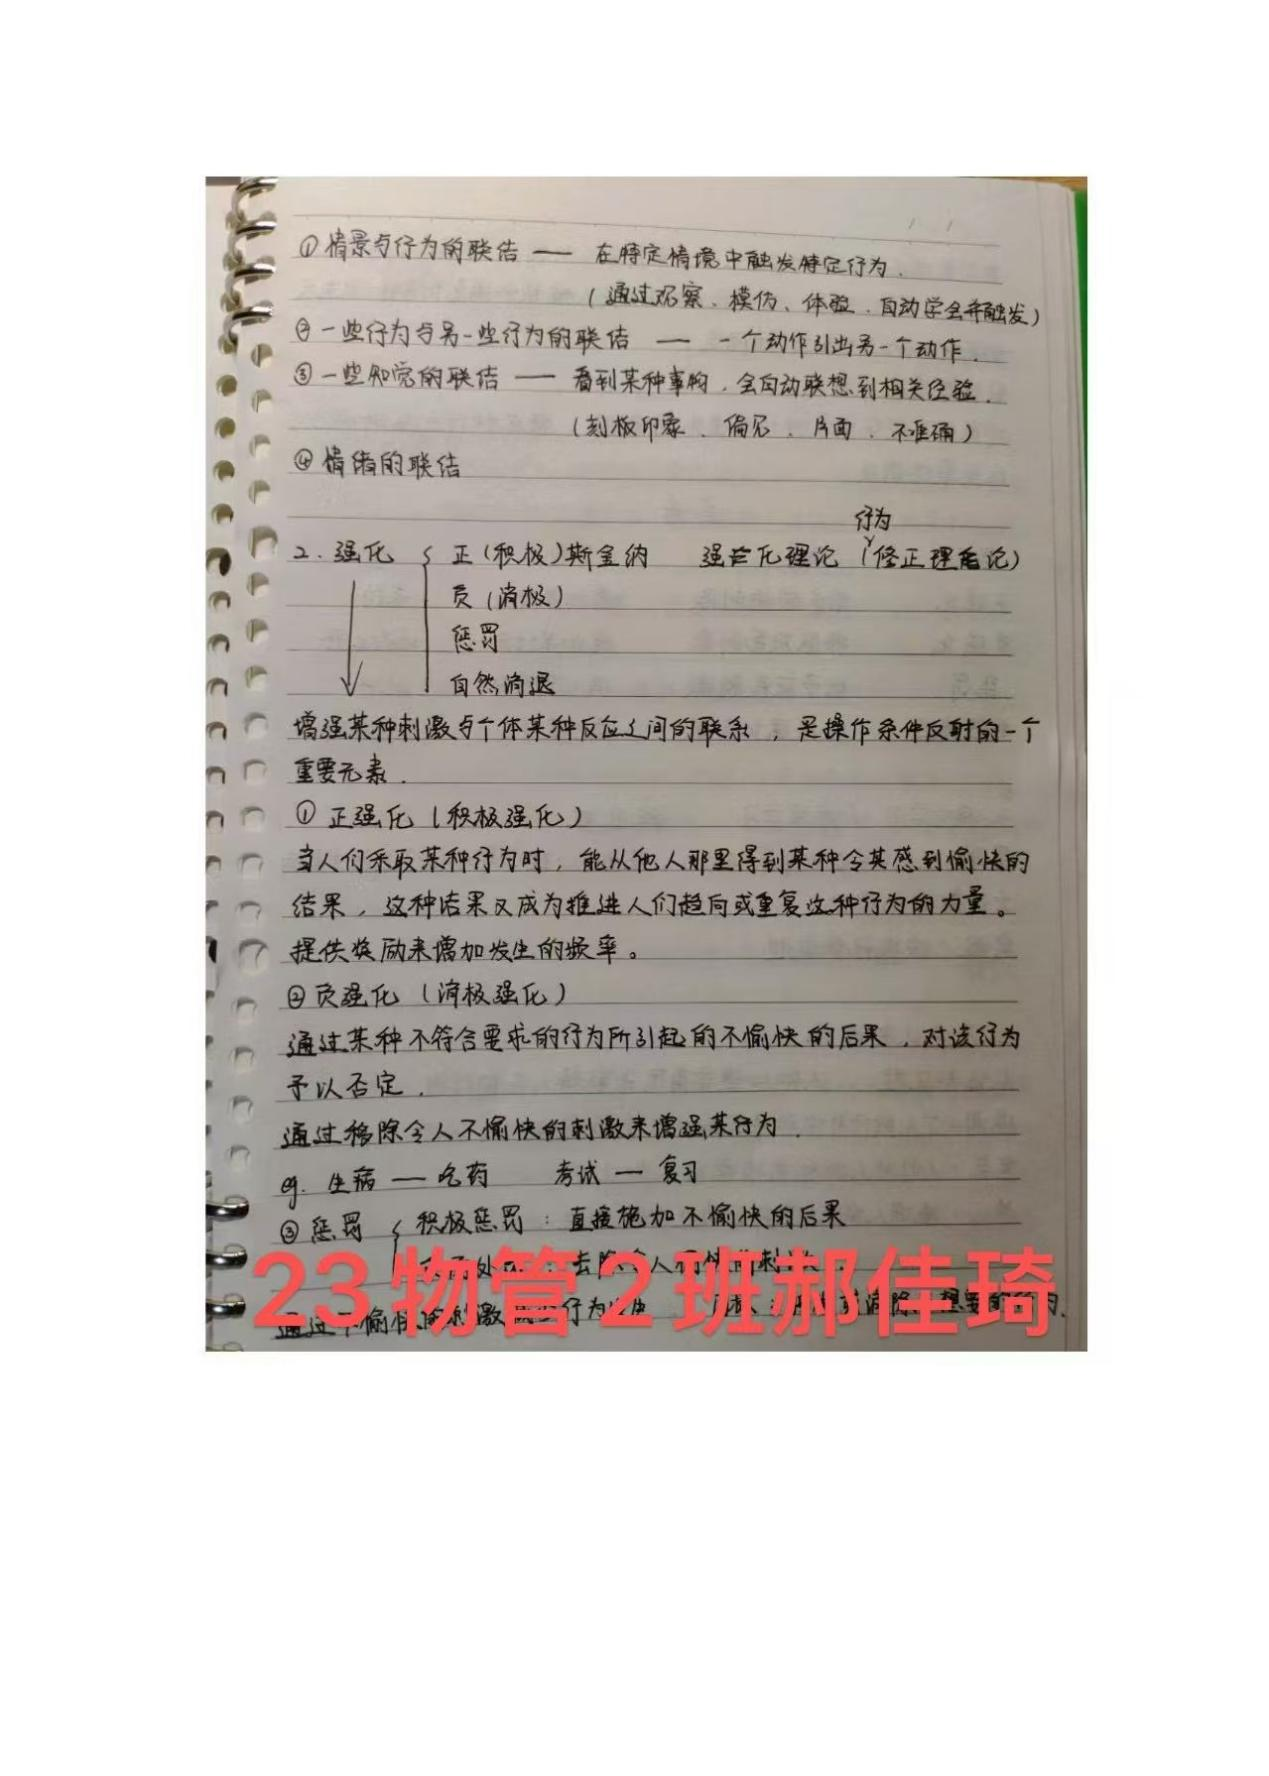 ①情景与行为的联结 —— 在特定情境中触发特定行为.
(通过观察、模仿、体验.自动学会并触发)
②一些行为与另一些行为的联结 —— 一个动作引出另一个动作.
③一些知觉的联结 —— 看到某种事物.会自动联想到相关经验.
(刻板印象、偏见、片面、不准确)
④情绪的联结
行为
2.强化 { 正(积极)斯金纳 强化理论 (修正理论)
负(消极)
惩罚
自然消退
增强某种刺激与个体某种反应之间的联系,是操作条件反射的一个
重要元素.
①正强化(积极强化)
当人们采取某种行为时,能从他人那里得到某种令其感到愉快的
结果,这种结果又成为推进人们趋向或重复这种行为的力量。
提供奖励来增加发生的频率。
②负强化(消极强化)
通过某种不符合要求的行为所引起的不愉快的后果,对该行为
予以否定.
通过移除令人不愉快的刺激来增强某行为.
eg. 生病 — 吃药 考试 — 复习
③惩罚 { 积极惩罚:直接施加不愉快的后果
23物管2班郝佳琦